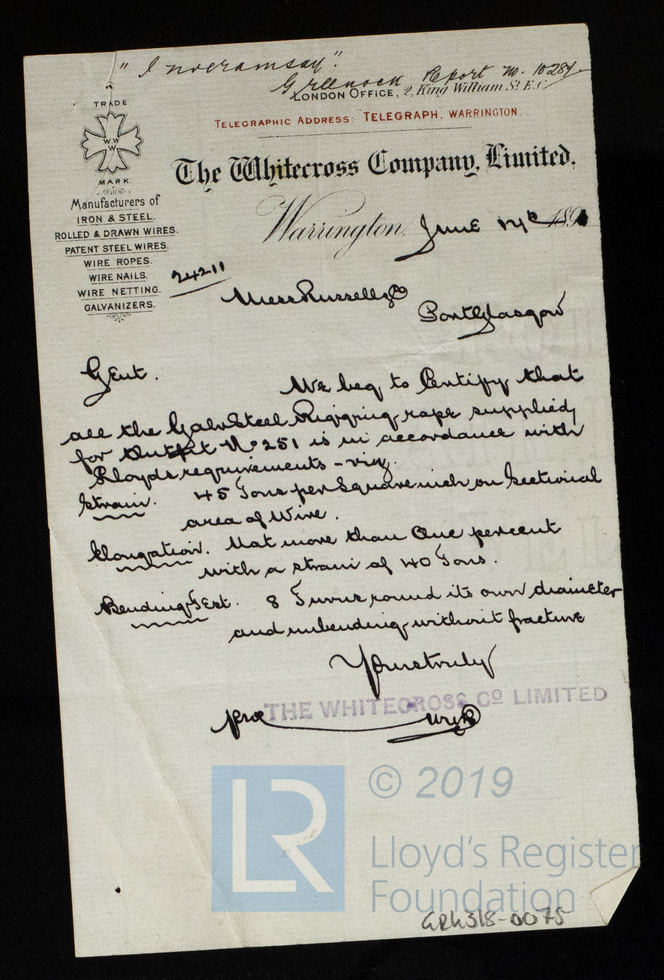 "Inveramsay".
Greenock Report No. 10284
LONDON OFFICE, 2, King William St. E.C.
TELEGRAPHIC ADDRESS: TELEGRAPH, WARRINGTON.
TRADE
W W W
MARK.
The Whitecross Company, Limited.
Manufacturers of
IRON & STEEL.
ROLLED & DRAWN WIRES.
PATENT STEEL WIRES.
WIRE ROPES.
WIRE NAILS.
WIRE NETTING.
GALVANIZERS.
Warrington, June 189
24211
Mess Russell & Co
Port Glasgow
Gent.
We beg to Certify that
all the Galv Steel Rigging rope supplied
for Outfit No. 251 is in accordance with
Lloyds requirements - viz.
Strain. 45 Tons per Square inch on Sectional
area of Wire.
Elongation. Not more than One percent
with a strain of 40 Tons.
Bending Test. 8 Turns round its own diameter
and unbending without fracture
Yours truly
THE WHITECROSS CO LIMITED
pro
LR
© 2019
Lloyd's Register
Foundation
GRK318-0075